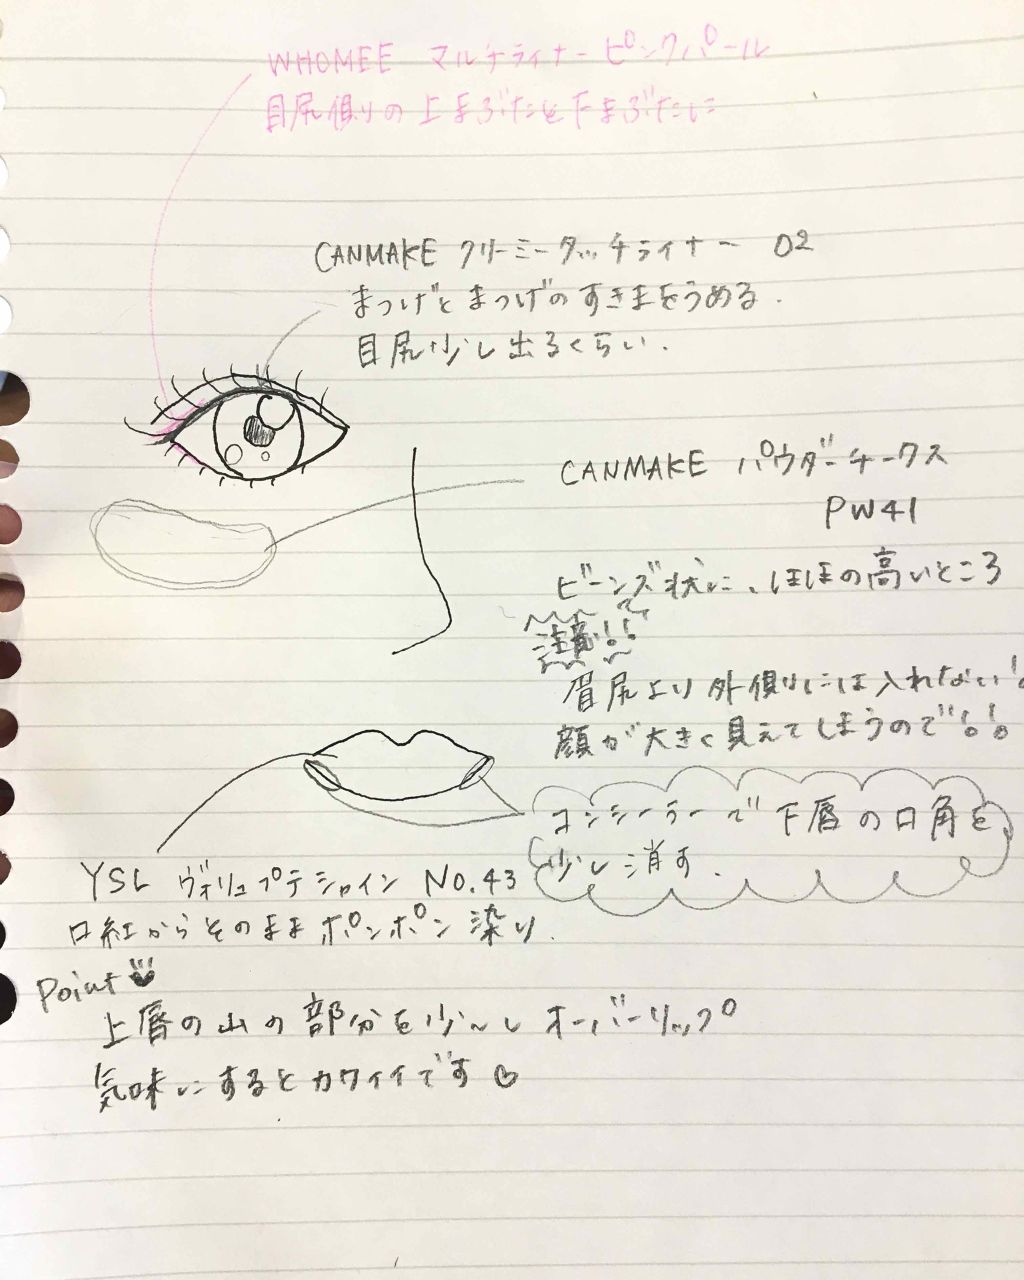 WHOMEE マルチライナー ピンクパール
目尻側りの上まぶたと下まぶたに
CANMAKE クリーミータッチライナー 02
まつげとまつげのすきまをうめる.
目尻少し出るくらい.
CANMAKE パウダーチークス
PW41
ビーンズ状に、ほほの高いところ
で
注意!!
眉尻より外側りには入れない!。
顔が大きく見えてしまうので!!
コンシーラーで下唇の口角を
少し消す.
YSL ヴォリュプテシャイン No.43
口紅からそのままポンポン染り.
Point
上唇の山の部分を少〜しオーバーリップ
気味にするとカワイイです♡